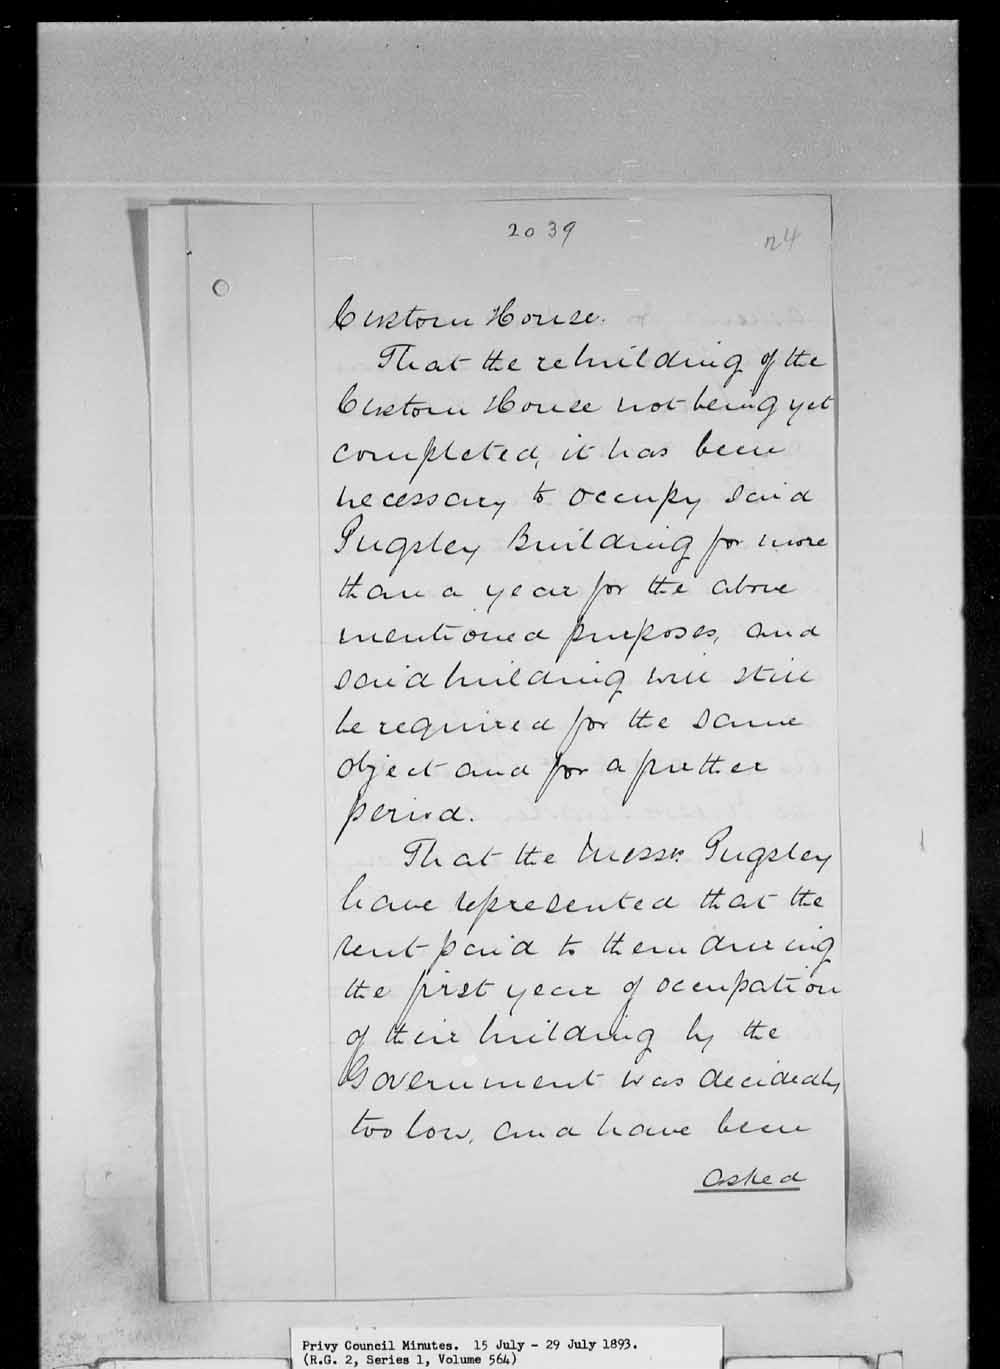 2039
24
Custom House.
That the rebuilding of the
Custom House not being yet
completed, it has been
necessary to occupy said
Pugsley Building for more
than a year for the above
mentioned purposes, and
said building will still
be required for the same
object and for a further
period.
That the Messrs. Pugsley
have represented that the
rent paid to them during
the first year of occupation
of their building by the
Government was decidedly
too low, and have been
asked
Privy Council Minutes. 15 July - 29 July 1893.
(R.G. 2, Series 1, Volume 564)